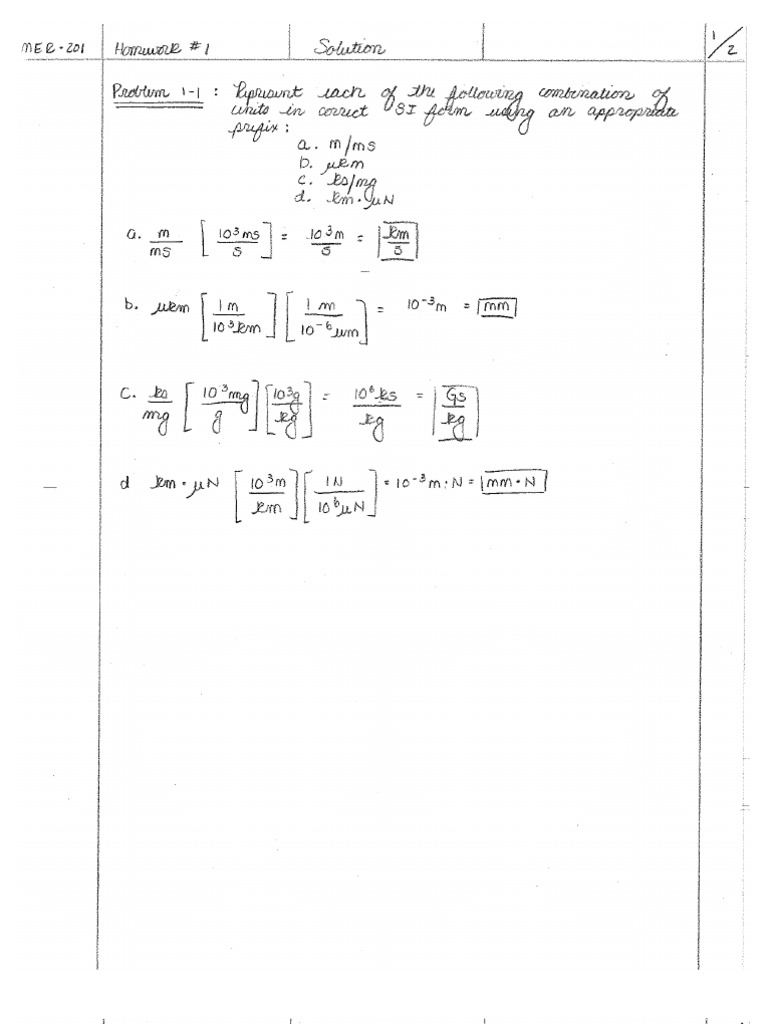 MER-201 Homework #1 Solution 1/2
Problem 1-1 : Represent each of the following combination of
units in correct SI form using an appropriate
prefix :
a. m/ms
b. μkm
c. ks/mg
d. km·μN
a. m/ms [10³ms/s] = 10³m/s = km/s
b. μkm [1m/10³km] [1m/10⁻⁶μm] = 10⁻³m = mm
c. ks/mg [10³mg/g] [10³g/kg] = 10⁶ks/kg = Gs/kg
d km·μN [10³m/km] [1N/10⁶μN] = 10⁻³m·N = mm·N